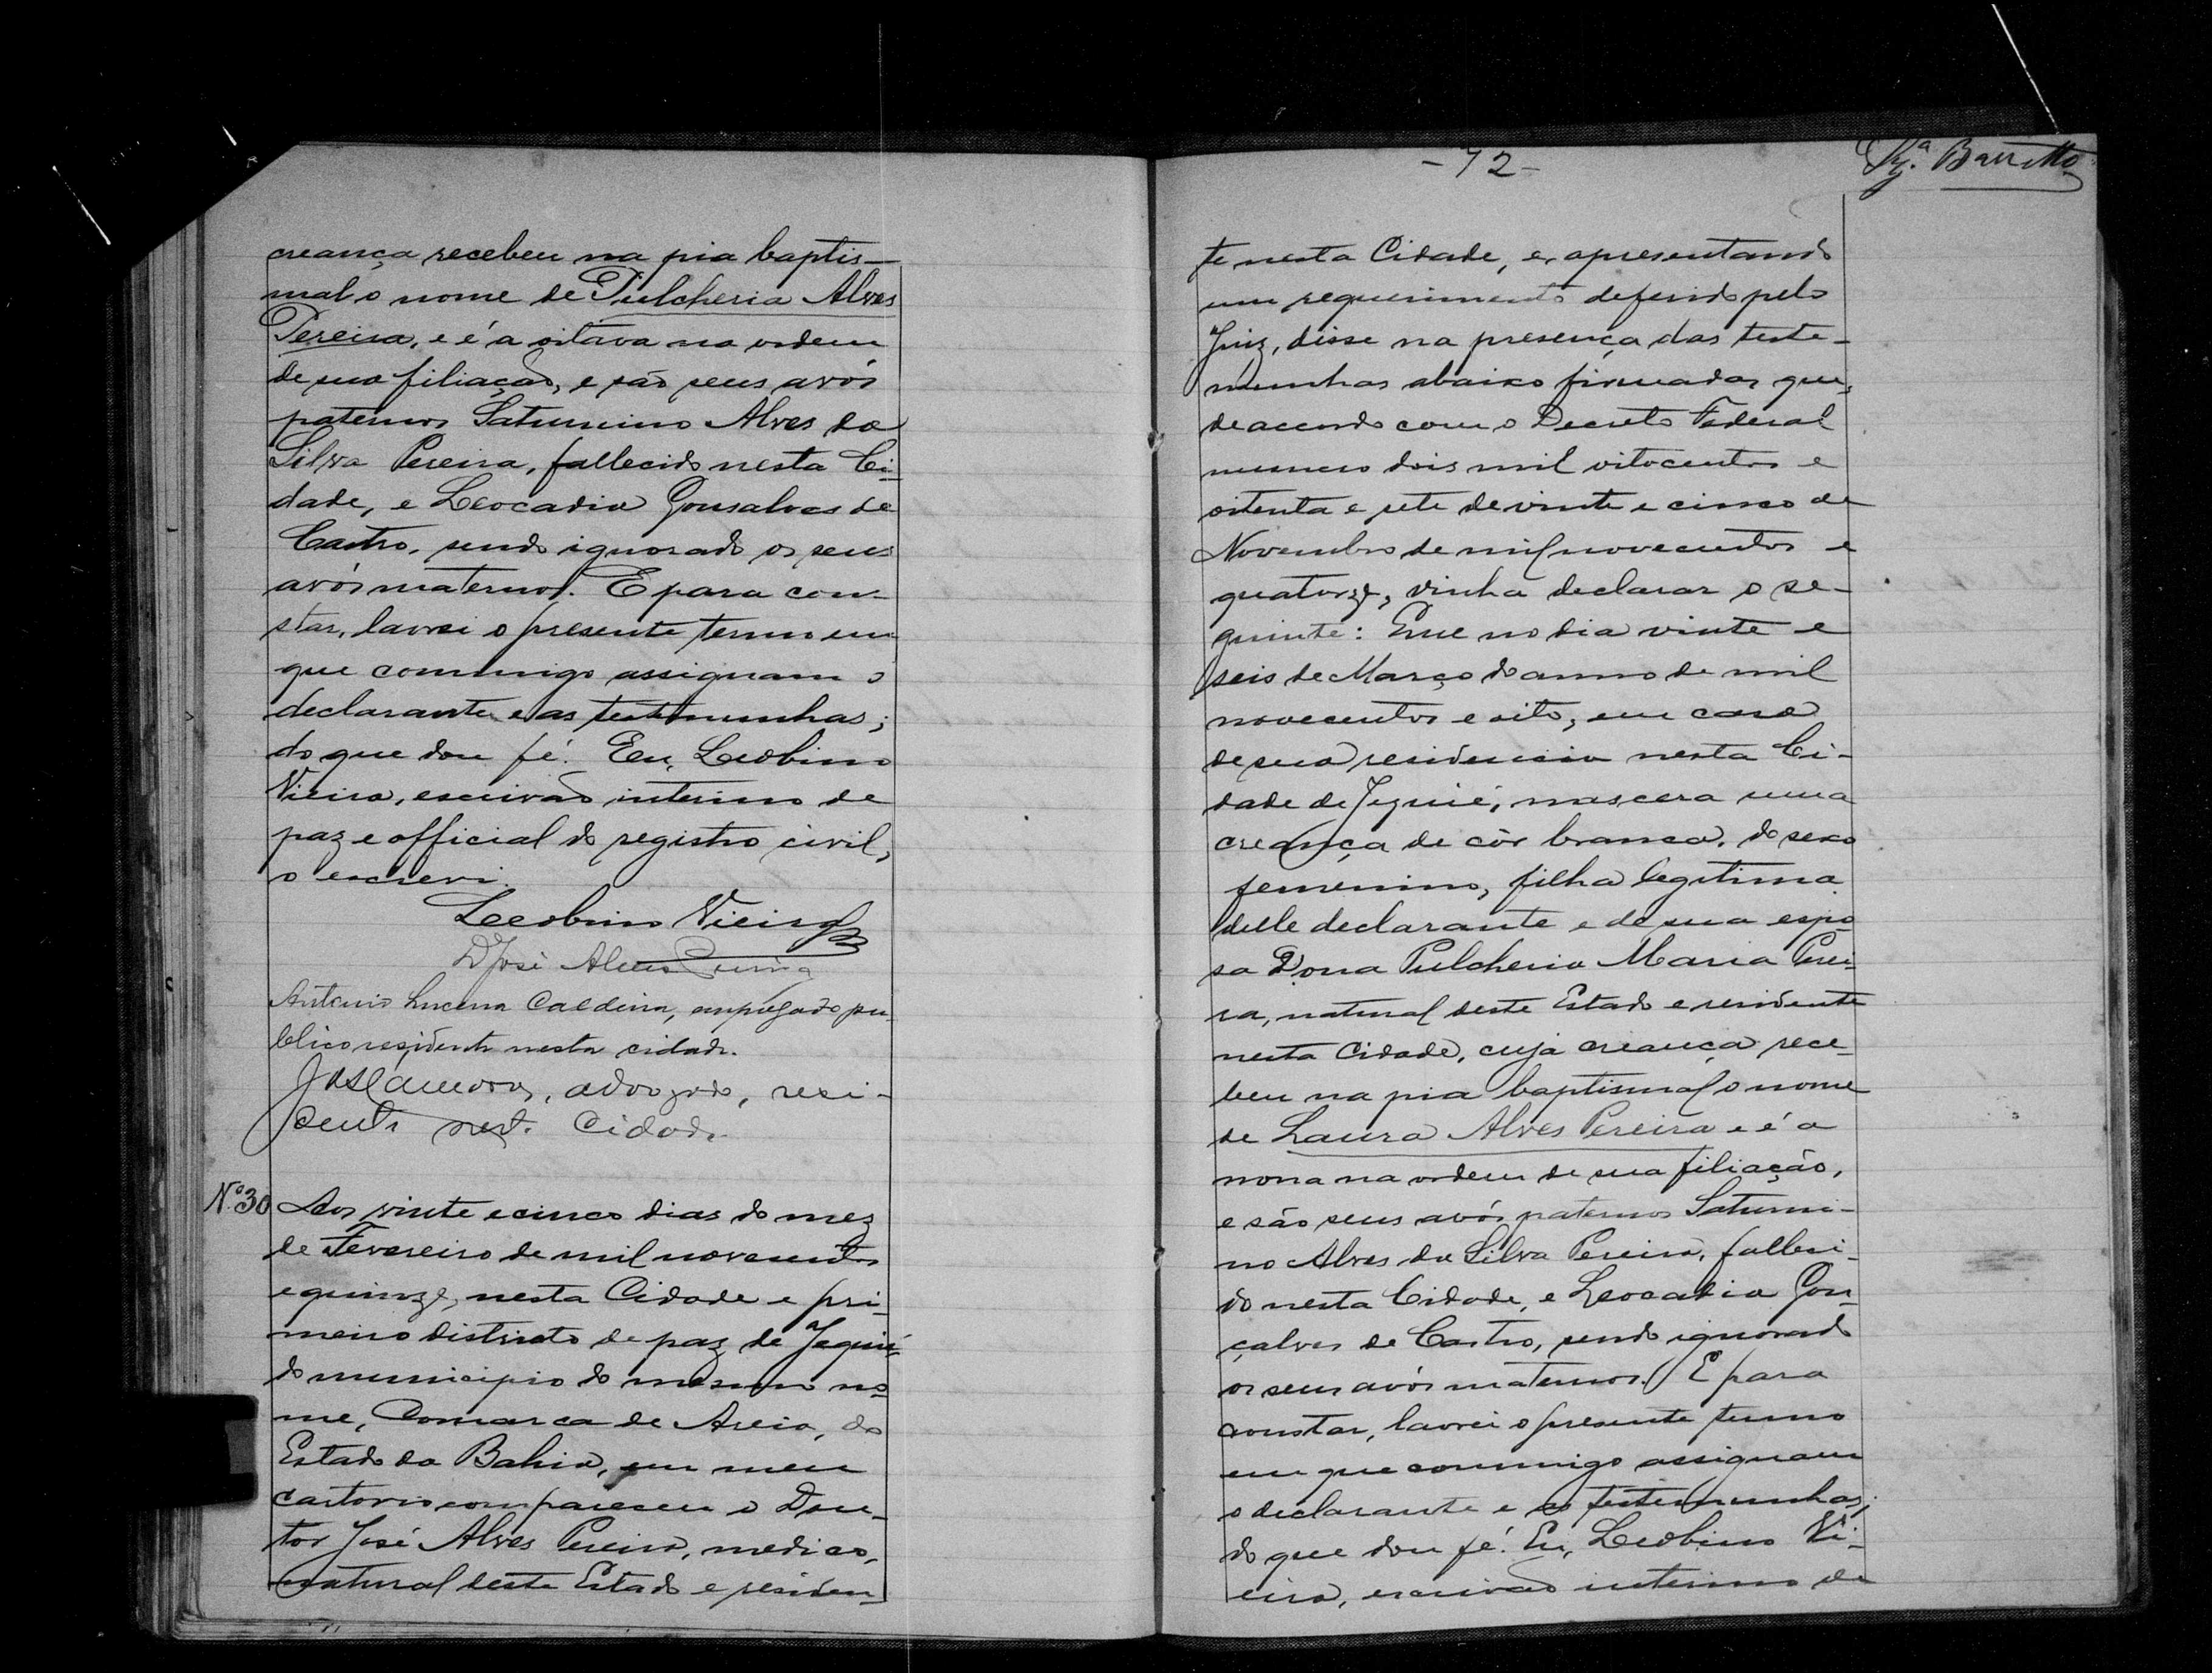 creança recebeu na pia baptis-
mal o nome de Pulcheria Alves
Pereira, e é a oitava na ordem
de sua filiação, e são seus avós
paternos Saturnino Alves da
Silva Pereira, fallecido nesta Ci-
dade, e Leocadia Gonsalves de
Castro, sendo ignorado os seus
avós maternos. E para con-
star, lavrei o presente termo em
que commigo assignam o
declarante e as testemunhas;
do que dou fé. Eu, Leobino
Vieira, escrivão interino de
paz e official do registro civil,
o escrevi.
Leobino Vieira
Dr José Alves
Antonio Lucena Caldeira, empregado pu-
blico residente nesta cidade.
advogado, resi-
dente nest. Cidade
Nº 30 Aos vinte e cinco dias do mez
de Fevereiro de mil novecentos
e quinze, nesta Cidade e pri-
meiro districto de paz de Jequié
do municipio do mesmo no-
me, Comarca de Areia, do
Estado da Bahia, em meu
cartorio compareceu o Dou-
tor José Alves Pereira, medico,
natural deste Estado e residen-
-72-
Barretto
te nesta Cidade, e, apresentando
um requerimento deferido pelo
Juiz, disse na presença das teste-
munhas abaixo firmadas que,
de accordo com o Decreto Federal
numero dois mil oitocentos e
oitenta e sete de vinte e cinco de
Novembro de mil novecentos e
quatorze, vinha declarar o se-
guinte: Que no dia vinte e
seis de Março do anno de mil
novecentos e oito, em casa
de sua residencia nesta Ci-
dade de Jequié, nascera uma
creança de côr branca, do sexo
femenino, filha legitima
delle declarante e de sua espo
sa Dona Pulcheria Maria Perei-
ra, natural deste Estado e residente
nesta Cidade, cuja creança rece-
beu na pia baptismal o nome
de Laura Alves Pereira e é a
nona na ordem de sua filiação,
e são seus avós paternos Saturni-
no Alves da Silva Pereira, falleci-
do nesta Cidade, e Leocadia Gon-
çalves de Castro, sendo ignorado
os seus avós maternos. E para
constar, lavrei o presente termo
em que commigo assignam
o declarante e as testemunhas;
do que dou fé. Eu, Leobino Vi-
eira, escrivão interino de